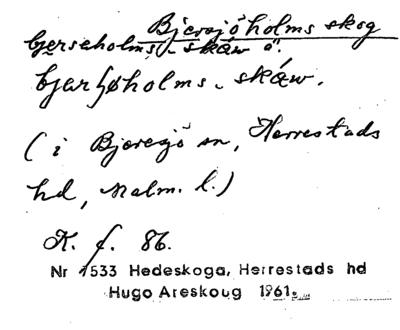 Bjersjöholms skog
bjerseholms-skåw ö.
bjarsøholms-skáw.
(i Bjeresjö sn, Herrestads
hd, Malm. l.)
K. f. 86.
Nr 1533 Hedeskoga, Herrestads hd
Hugo Areskoug 1961.